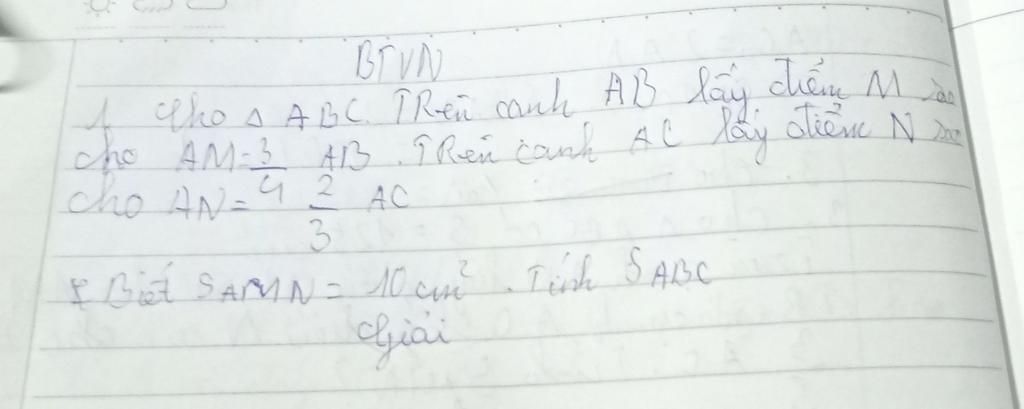 BTVN
1 Cho Δ ABC. TRên cạnh AB lấy điểm M sao
cho AM = 3/4 AB. TRên cạnh AC lấy điểm N sao
cho AN = 2/3 AC
* Biết S AMN = 10 cm². Tính S ABC
Giải